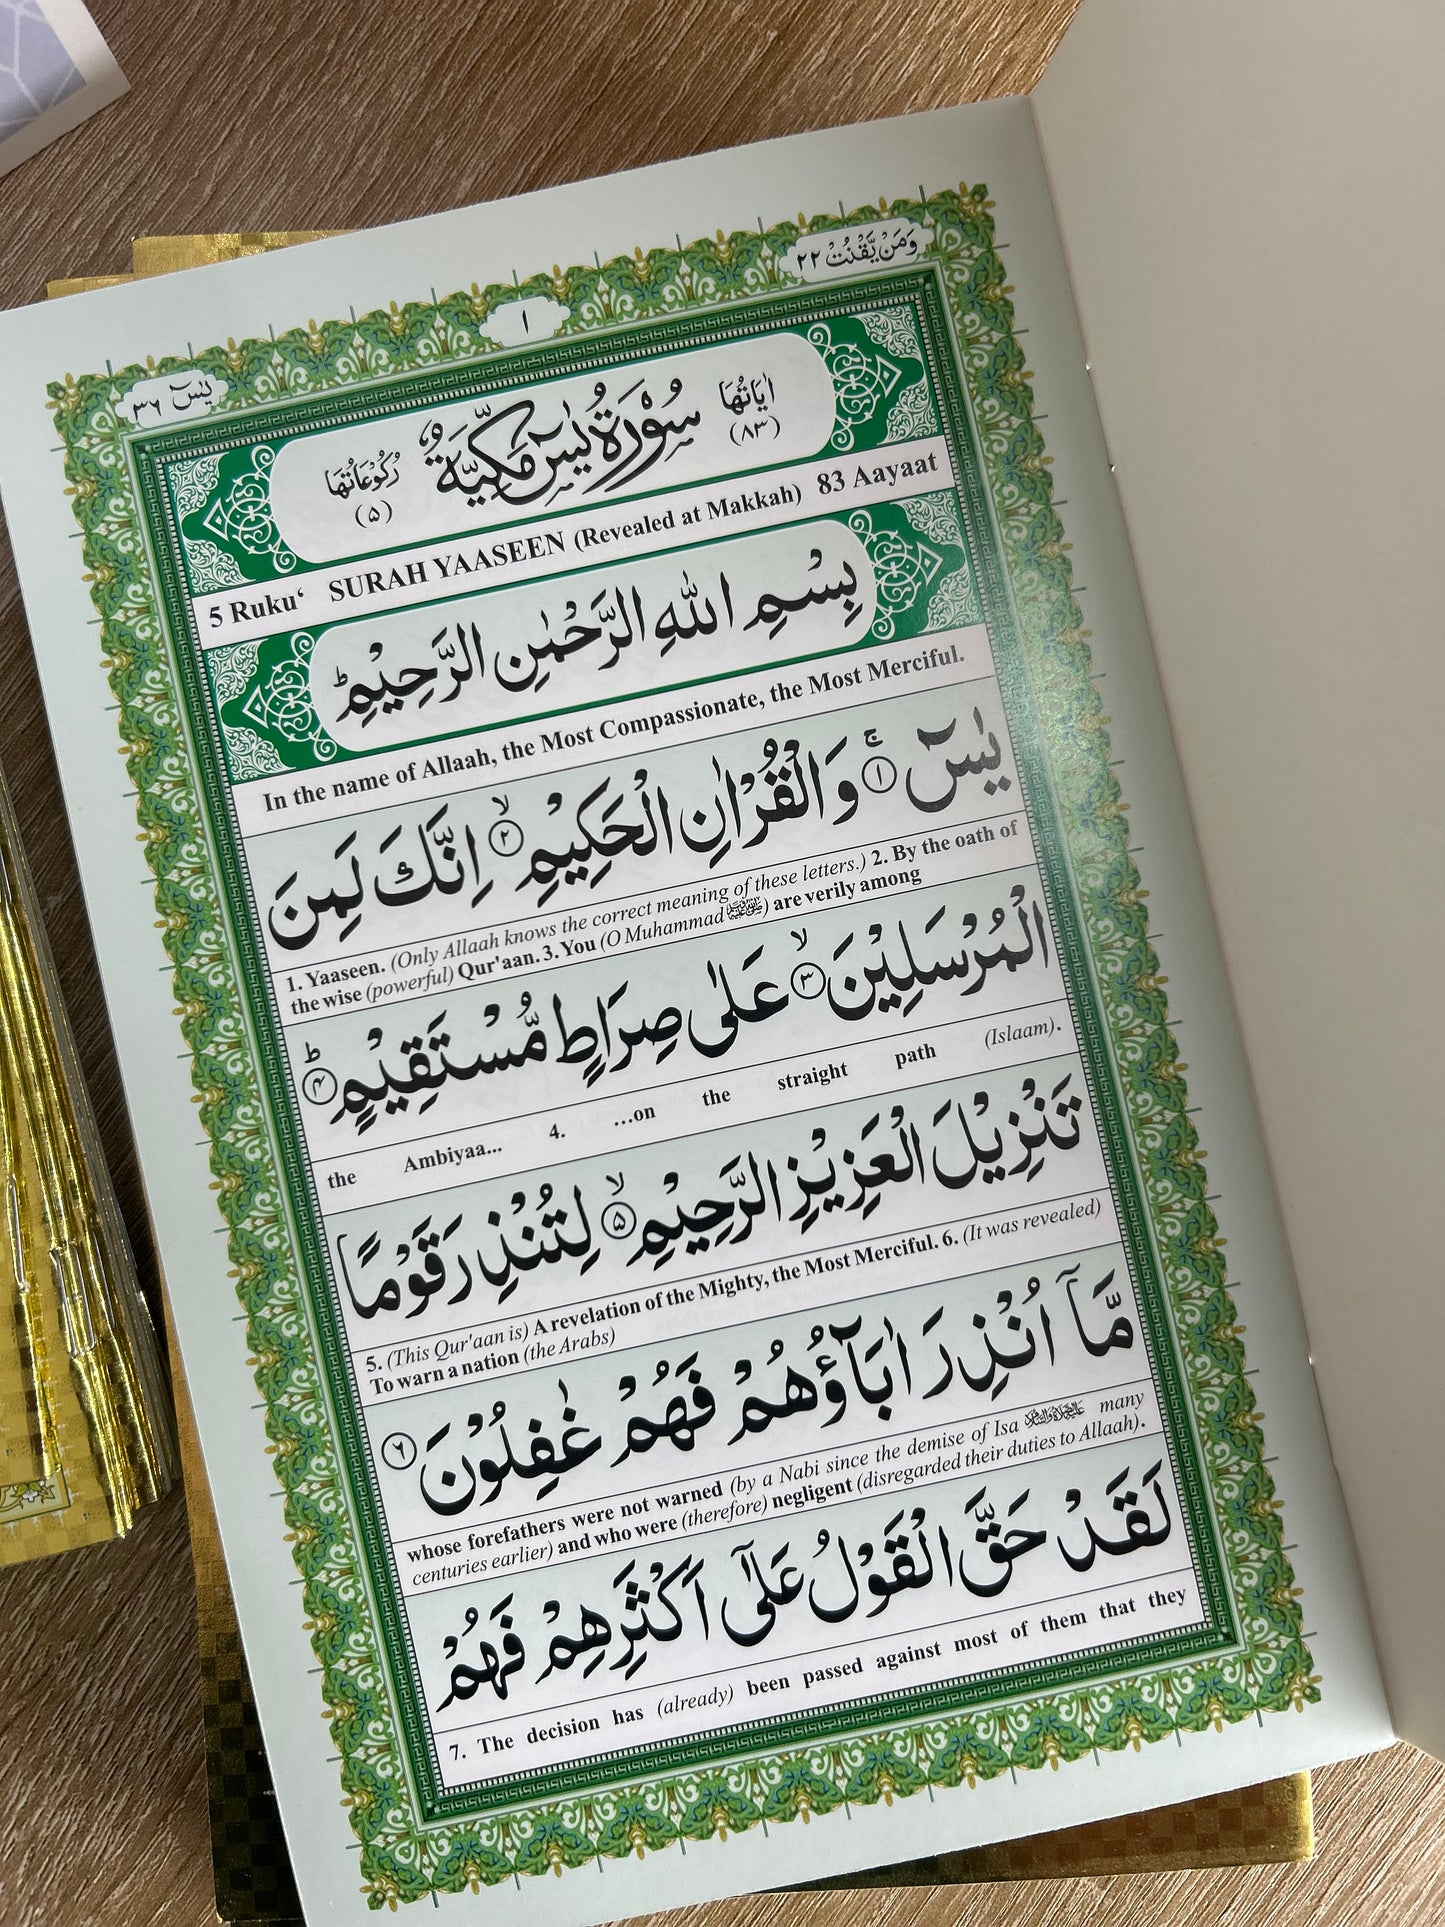 وَمَنْ يَّقْنُتْ ٢٢
١
يٰسٓ ٣٦
اٰيَاتُهَا
(٨٣)
سُوْرَةُ يٰسٓ مَكِّيَّةٌ
رُكُوْعَاتُهَا
(٥)
5 Ruku‘ SURAH YAASEEN (Revealed at Makkah) 83 Aayaat
بِسْمِ اللّٰهِ الرَّحْمٰنِ الرَّحِيْمِ ؕ
In the name of Allaah, the Most Compassionate, the Most Merciful.
يٰسٓ ۚ ١ وَالْقُرْاٰنِ الْحَكِيْمِ ۙ ٢ اِنَّكَ لَمِنَ
1. Yaaseen. (Only Allaah knows the correct meaning of these letters.) 2. By the oath of
the wise (powerful) Qur'aan. 3. You (O Muhammad ﷺ) are verily among
الْمُرْسَلِيْنَ ۙ ٣ عَلٰى صِرَاطٍ مُّسْتَقِيْمٍ ؕ ٤
the Ambiyaa... 4. ...on the straight path (Islaam).
تَنْزِيْلَ الْعَزِيْزِ الرَّحِيْمِ ۙ ٥ لِتُنْذِرَ قَوْمًا
5. (This Qur'aan is) A revelation of the Mighty, the Most Merciful. 6. (It was revealed)
To warn a nation (the Arabs)
مَّاۤ اُنْذِرَ اٰبَآؤُهُمْ فَهُمْ غٰفِلُوْنَ ٦
whose forefathers were not warned (by a Nabi since the demise of Isa عليه الصلاة والسلام many
centuries earlier) and who were (therefore) negligent (disregarded their duties to Allaah).
لَقَدْ حَقَّ الْقَوْلُ عَلٰۤى اَكْثَرِهِمْ فَهُمْ
7. The decision has (already) been passed against most of them that they